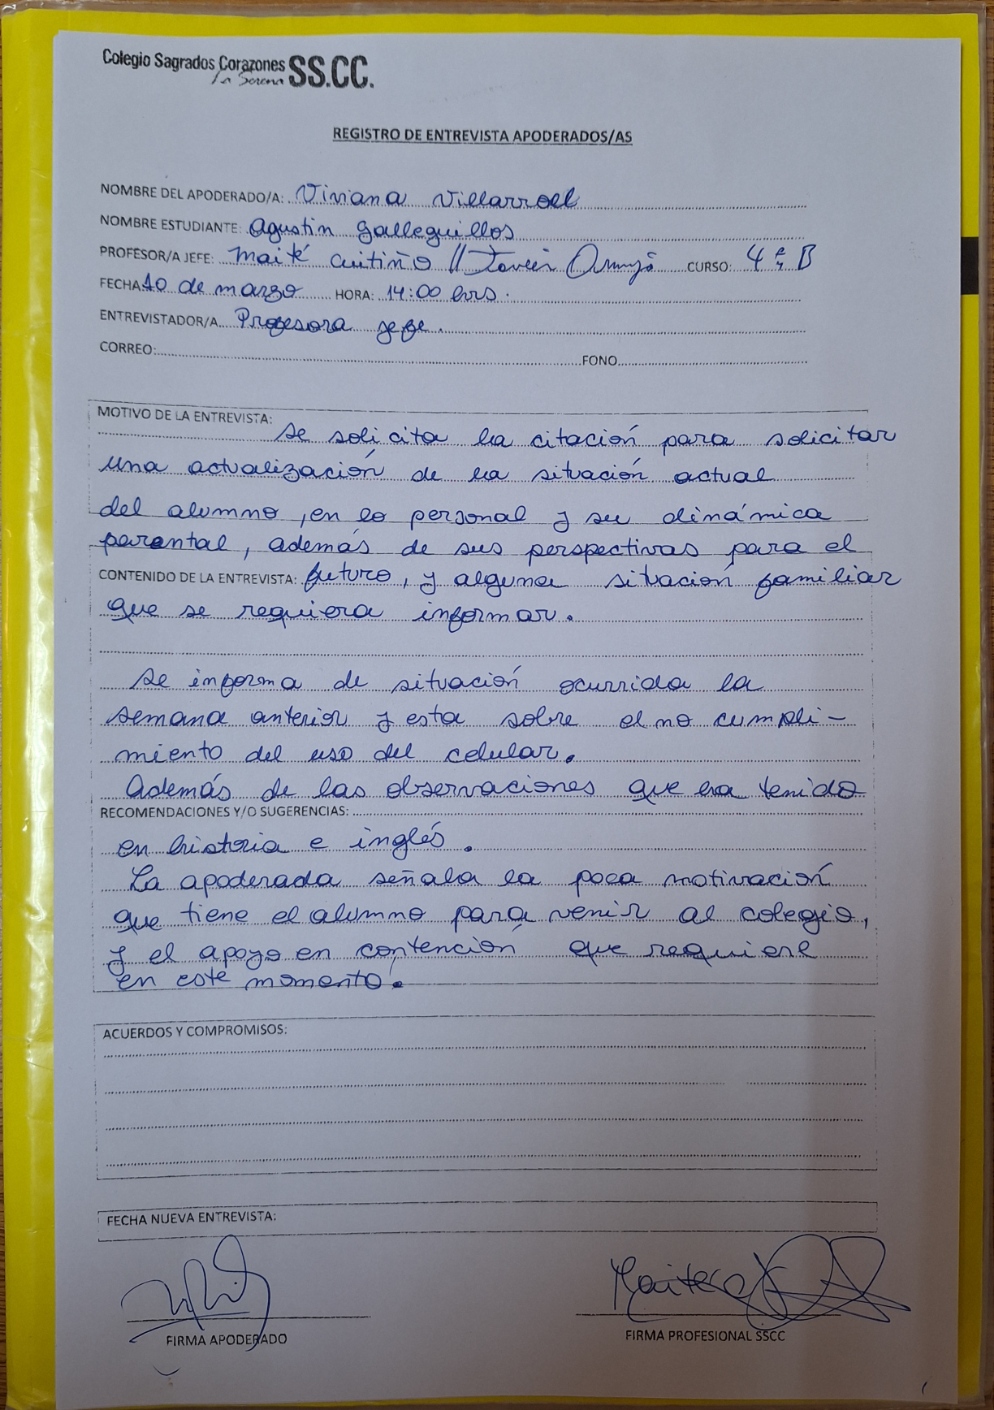 Colegio Sagrados Corazones SS.CC.
La Serena
REGISTRO DE ENTREVISTA APODERADOS/AS
NOMBRE DEL APODERADO/A: Viviana Villarroel
NOMBRE ESTUDIANTE: Agustin Galleguillos
PROFESOR/A JEFE: Maité Cuitiño // Javier CURSO: 4° B
FECHA 10 de marzo HORA: 14:00 hrs.
ENTREVISTADOR/A Profesora jefe.
CORREO: FONO
MOTIVO DE LA ENTREVISTA:
Se solicita la citación para solicitar
una actualización de la situación actual
del alumno, en lo personal y su dinámica
parental, además de sus perspectivas para el
CONTENIDO DE LA ENTREVISTA: futuro, y alguna situación familiar
que se requiera informar.
Se informa de situación ocurrida la
semana anterior y esta sobre el no cumpli-
miento del uso del celular.
Además de las observaciones que ha tenido
RECOMENDACIONES Y/O SUGERENCIAS:
en historia e inglés.
La apoderada señala la poca motivación
que tiene el alumno para venir al colegio,
y el apoyo en contención que requiere
en este momento.
ACUERDOS Y COMPROMISOS:
FECHA NUEVA ENTREVISTA:
FIRMA APODERADO
FIRMA PROFESIONAL SSCC